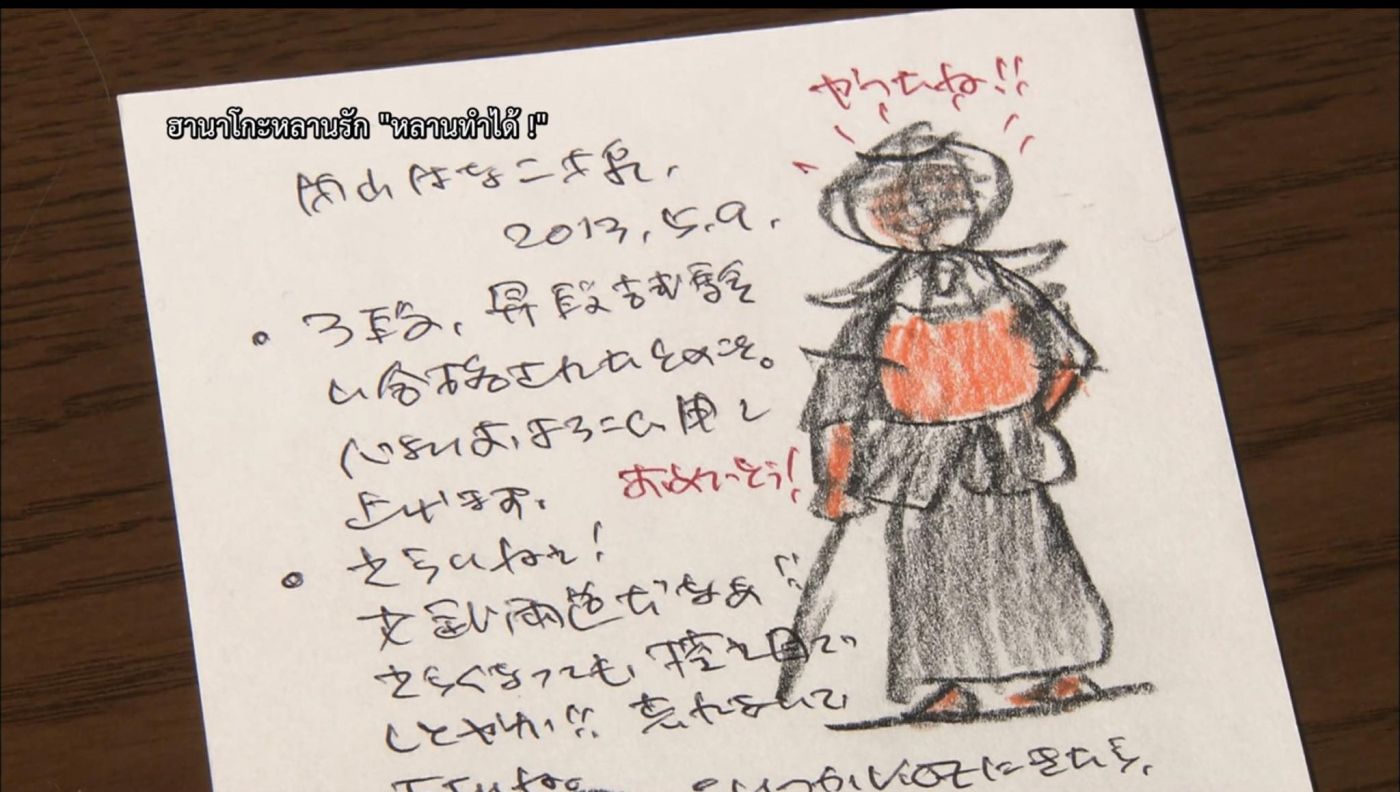 やったね!!
ฮานาโกะหลานรัก "หลานทำได้ !"
はなこ
2013.5.9.
• 3段、昇段試験
に合格されたとのこと。
心よりお、よろこび申し
上げます。 おめでとう!
• えらいねえ!
文武両道だなあ!!
えらくなっても、控え目で
しとやか!! 忘れないで